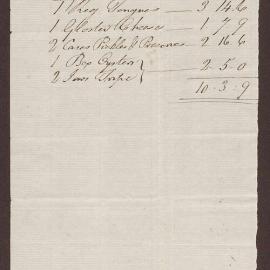 7 Kegs Tongues — 3 14.6
1 Gloster Cheese — 1 7 9
2 Cases Pickles & Preserves 2 16.6
1 Box Oysters
2 Jars 2-5-0
10-3-9